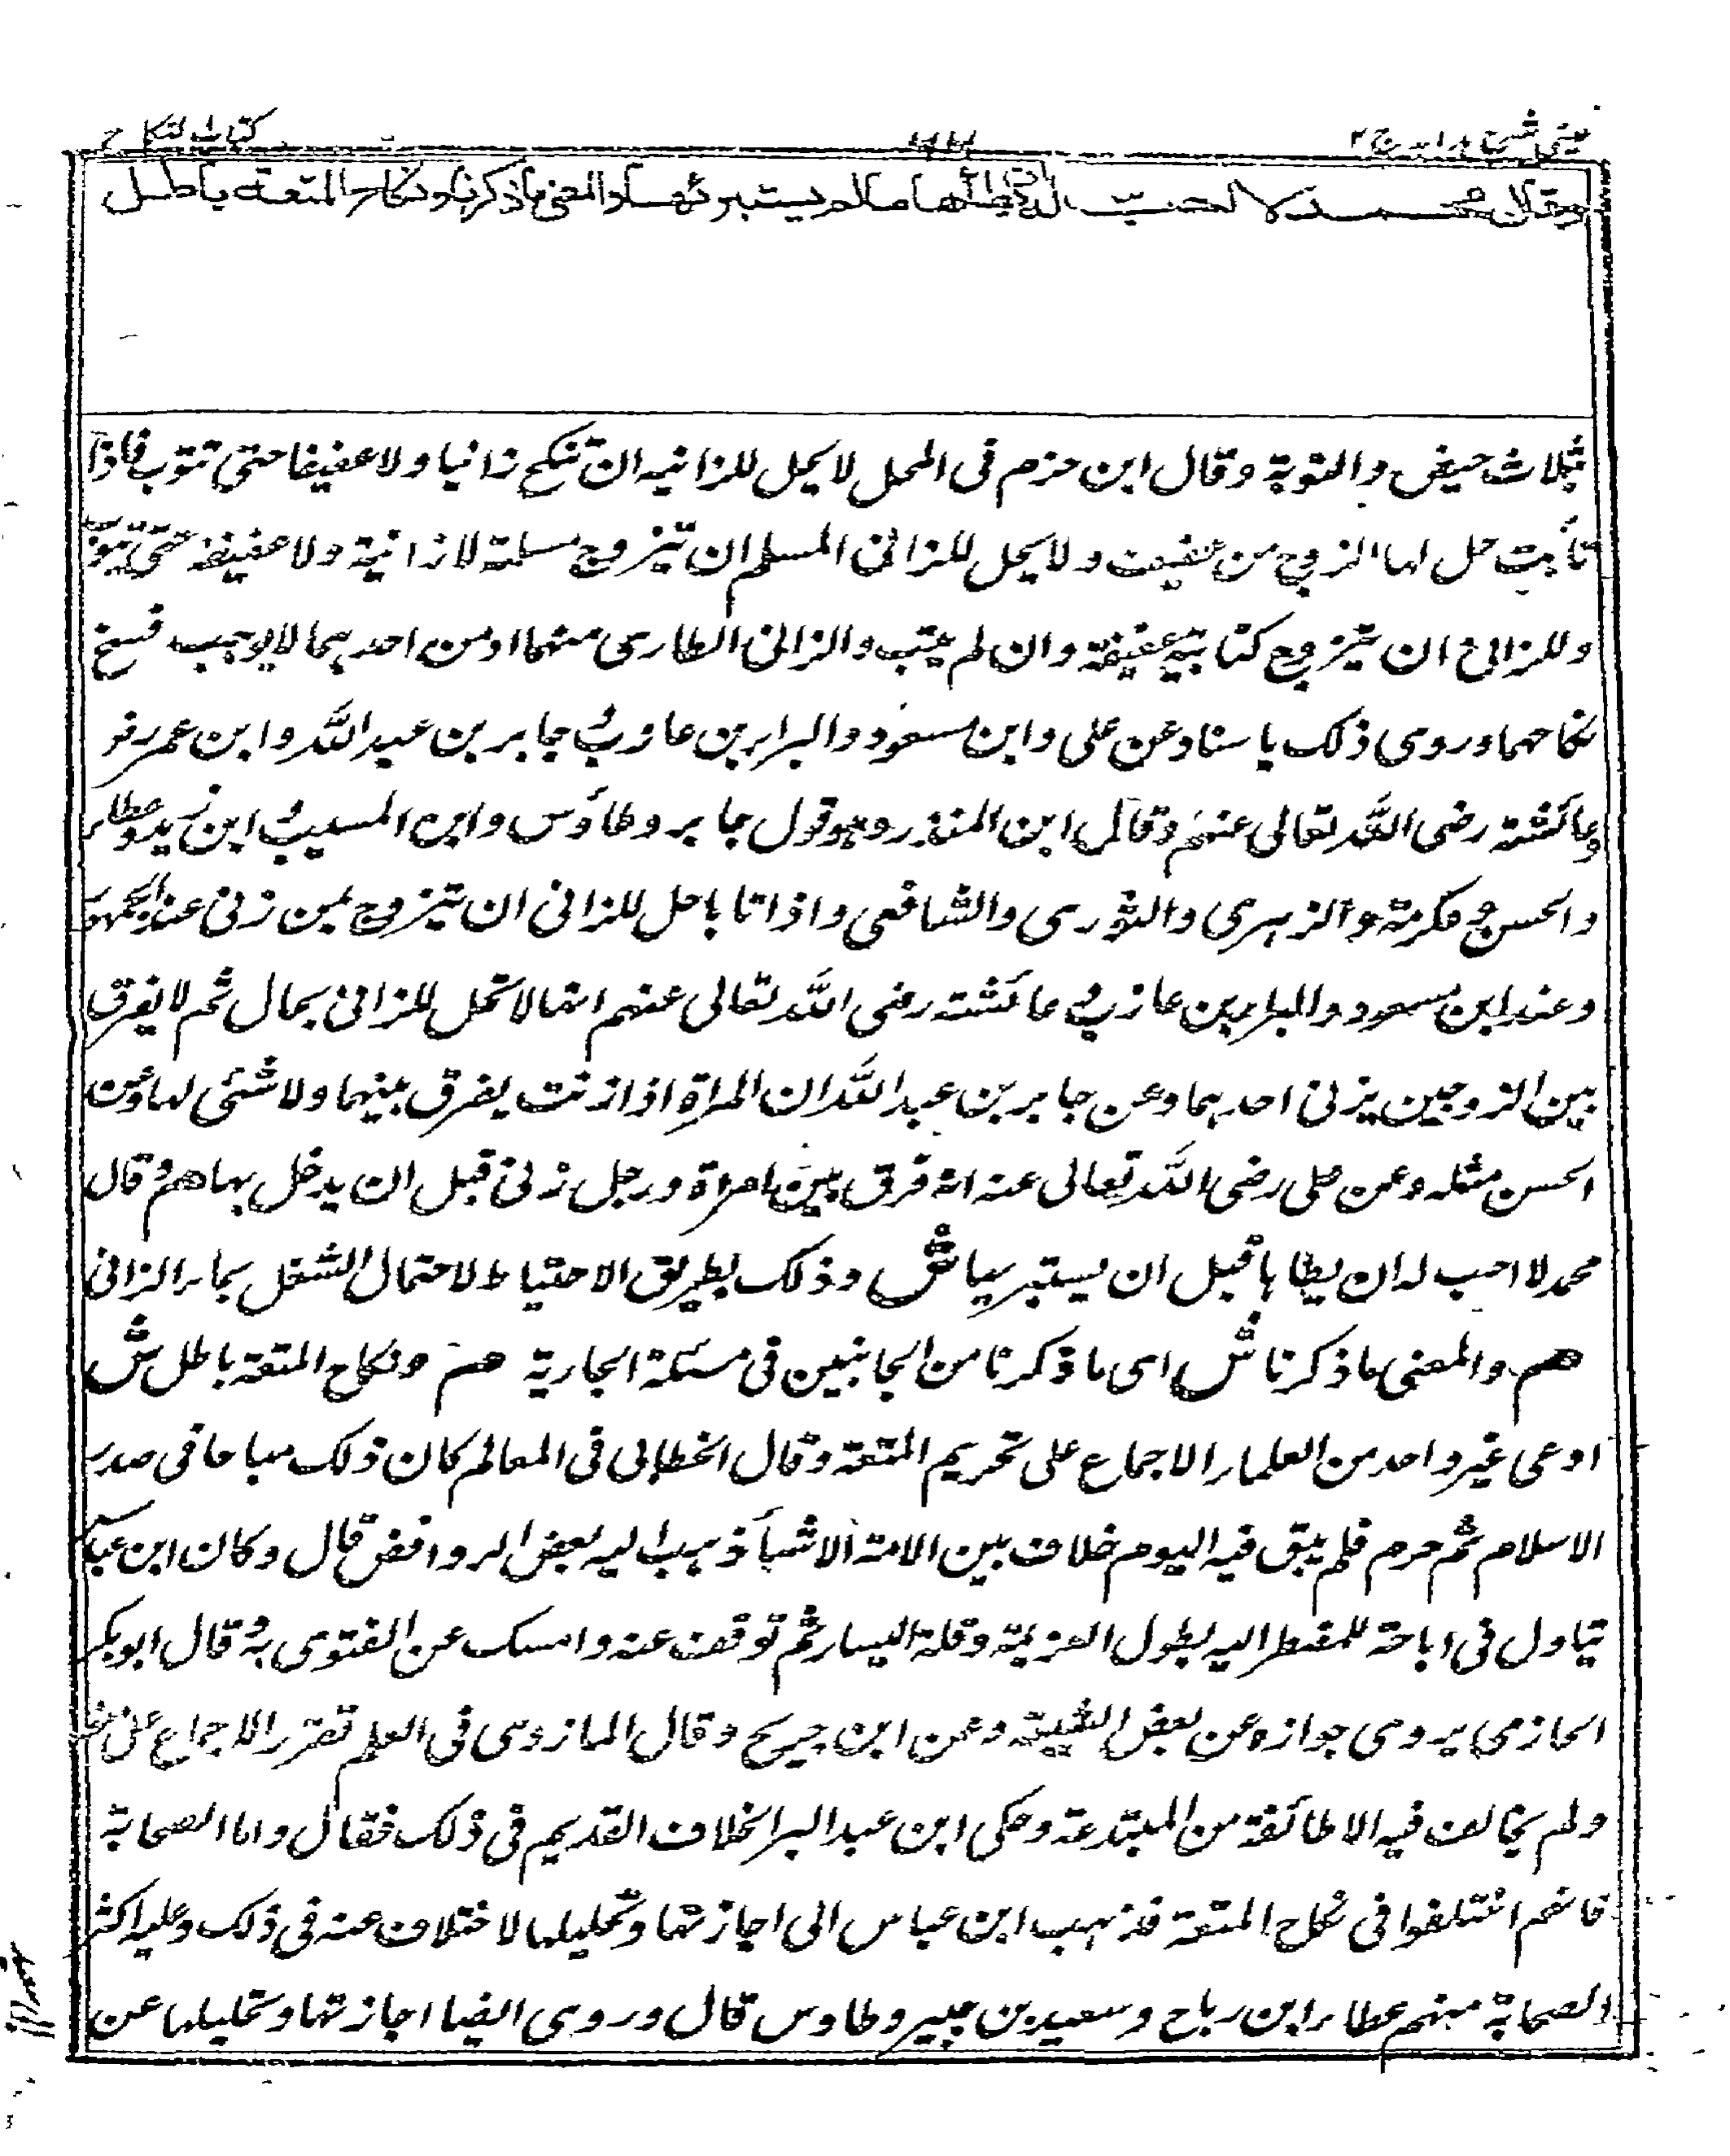 عینی شرح هدایه ج ۲ كتاب النكاح
وقال محمد لا احب له ان يطأها ما لم يستبرئها والمعنى ما ذكرنا ونكاح المتعة باطل
ثلاث حيض والتوبة وقال ابن حزم فى المحل لا يحل للزانيه ان تنكح زانيا ولا عفيفا حتى تتوب فاذا
تابت حل لها الزوج من عفيف ولا يحل للزانى المسلم ان يتزوج مسلمة لا زانية ولا عفيفة حتى يتوب
وللزانى ان يتزوج كتابية عفيفة وان لم يتب والزانى الطارى منهما او من احدهما لا يوجب فسخ
نكاحهما وروى ذلك باسناد عن على وابن مسعود والبراء بن عازب وجابر بن عبد الله وابن عمر
وعائشة رضى الله تعالى عنهم وقال ابن المنذر وهو قول جابر وطاؤس وابن المسيب وابن زيد وعطاء
والحسن وعكرمة والزهرى والثورى والشافعى واذا تابا حل للزانى ان يتزوج بمن زنى عند الجمهور
وعند ابن مسعود والبراء بن عازب وعائشة رضى الله تعالى عنهم انها لا تحل للزانى بحال ثم لا يفرق
بين الزوجين يزنى احدهما وعن جابر بن عبد الله ان المراة اذا زنت يفرق بينهما ولا شئى لها وعن
الحسن مثله وعن على رضى الله تعالى عنه انه فرق بين امراة ورجل زنى قبل ان يدخل بها هم وقال
محمد لا احب له ان يطاها قبل ان يستبرياش وذلك بطريق الاحتياط لاحتمال الشغل بماء الزانى
هم والمعنى ما ذكرنا ش اى ما ذكرنا من الجانبين فى مسئلة الجارية هم ونكاح المتعة باطل ش
ادعى غير واحد من العلماء الاجماع على تحريم المتعة وقال الخطابى فى المعالم كان ذلك مباحا فى صدر
الاسلام ثم حرم فلم يبق فيه اليوم خلاف بين الامة الا شيأ ذهب اليه بعض الروافض قال وكان ابن عباس
يتاول فى اباحة للمضطر اليه بطول العزبة وقلة اليسار ثم توقف عنه وامسك عن الفتوى به وقال ابوبكر
الحازمى يروى جوازه عن بعض الشيعة وعن ابن جريج وقال المازرى فى العلم تقرر الاجماع على
ولم يخالف فيه الا طائفة من المبتدعة وحكى ابن عبد البر الخلاف القديم فى ذلك فقال واما الصحابة
فانهم اختلفوا فى نكاح المتعة فذهب ابن عباس الى اجازتها وتحليلها لا خلاف عنه فى ذلك وعليه اكثر
الصحابة منهم عطاء ابن رباح وسعيد بن جبير وطاوس قال وروى ايضا اجازتها وتحليلها عن